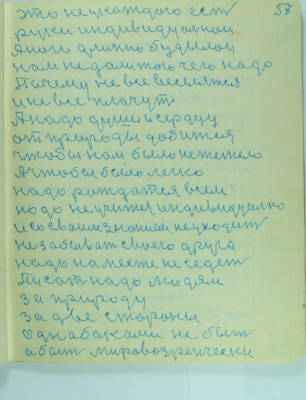 это не укаждого ест 57
руки индивидуалнои
нам не дали того чего надо
Почему не все веселятся
и не все плачут
А надо души и сердцу
от природы добится
чтобы нам было не тежело
А чтобы было легко
надо рождатся всем
надо не учится индивидуално
и со своим знанием не уходит
не забыват своего друга
надо на месте не седет
Писат надо людям
за природу
за две стороны
однабоками не быт
а быт мировозренчески